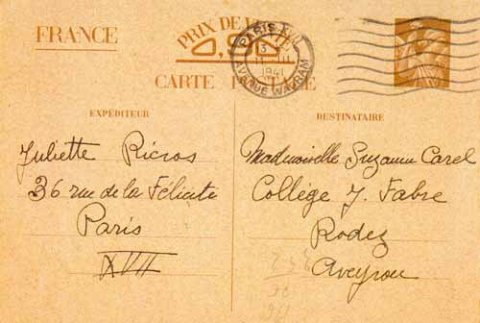 FRANCE
PRIX DE
0,90
CARTE
PARIS XVII
1941
AVENUE WAGRAM
EXPÉDITEUR
Juliette Ricros
36 rue de la Félicité
Paris
XVII
DESTINATAIRE
Mademoiselle Suzanne Carel
Collège J. Fabre
Rodez
Aveyron